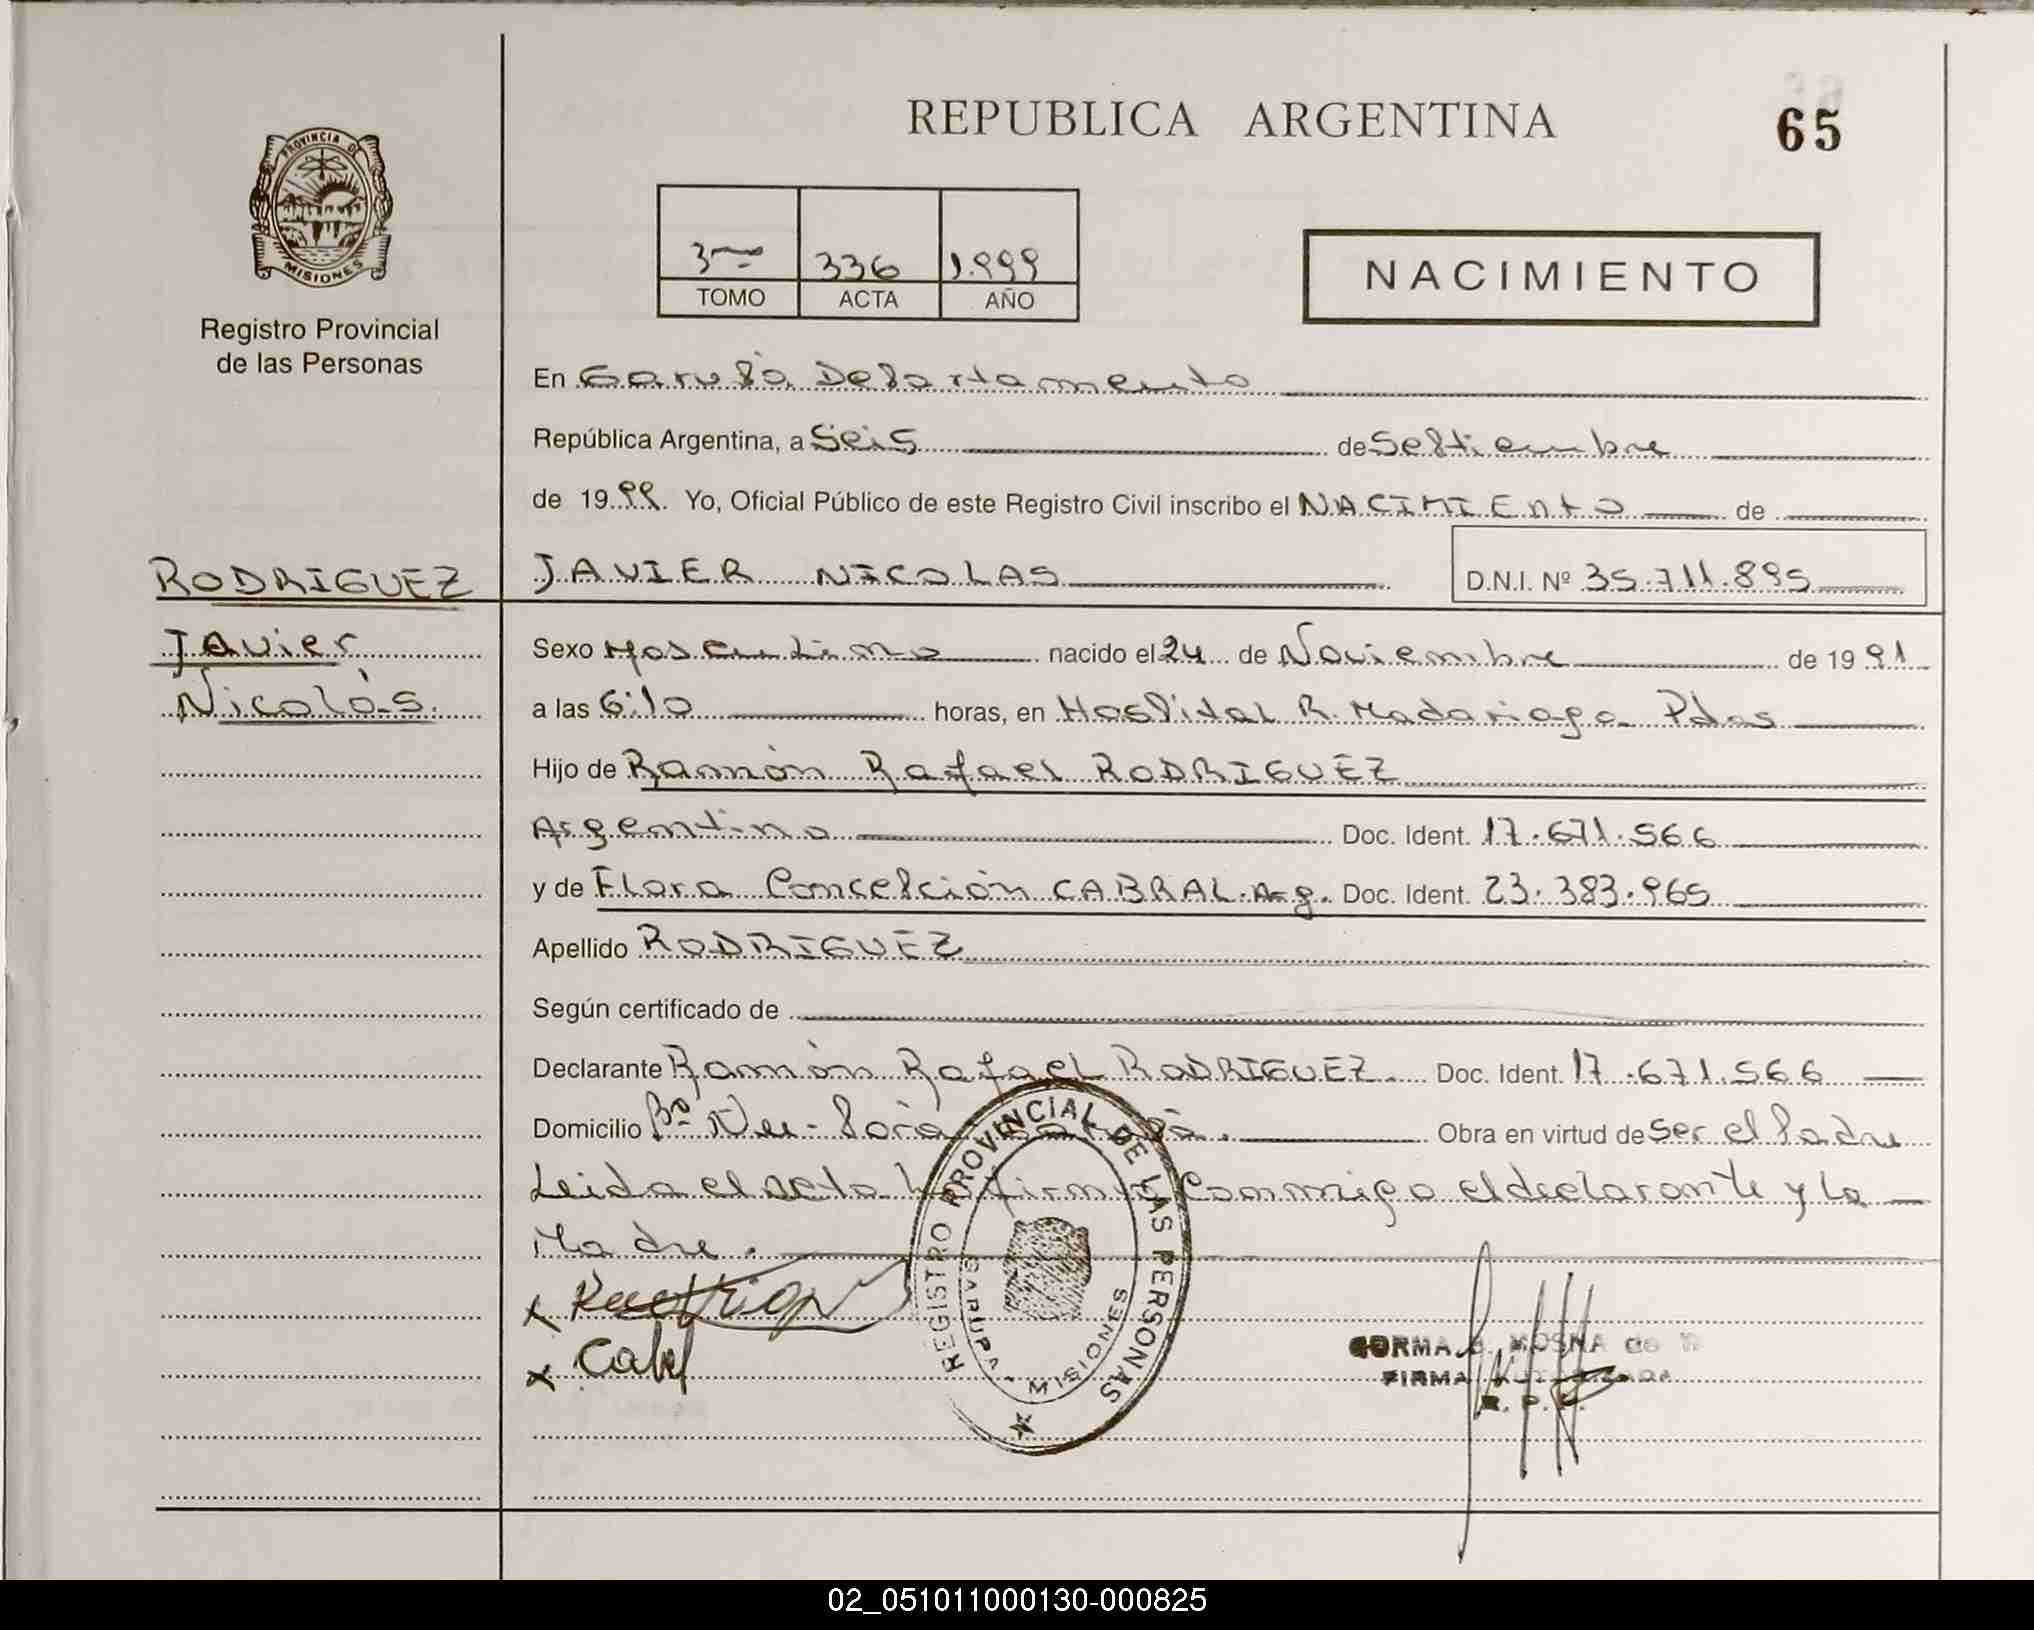 REPUBLICA ARGENTINA
65
PROVINCIA DE
MISIONES
Registro Provincial
de las Personas
336 1.999
TOMO ACTA AÑO
NACIMIENTO
En Garupá Departamento
República Argentina, a Seis de Septiembre
de 1999. Yo, Oficial Público de este Registro Civil inscribo el NACIMIENTO de
RODRIGUEZ JAVIER NICOLAS D.N.I. Nº 35.711.895
Javier Sexo Masculino nacido el 24 de Noviembre de 1991
Nicolás. a las 6:10 horas, en Hospital R. Madariaga Pdas
Hijo de Ramón Rafael RODRIGUEZ
Argentino Doc. Ident. 17.671.566
y de Flora Concepción CABRAL. Arg. Doc. Ident. 23.383.965
Apellido RODRIGUEZ
Según certificado de
Declarante Ramón Rafael RODRIGUEZ. Doc. Ident. 17.671.566
Domicilio Bº Ñu-Porá Garupá. Obra en virtud de ser el padre
Leida el acta la firman conmigo el declarante y la
Madre.
x
x Cabl
REGISTRO PROVINCIAL DE LAS PERSONAS
GARUPA - MISIONES
MOSNA de
FIRMA AUTORIZADA
R. P. P.
02_051011000130-000825